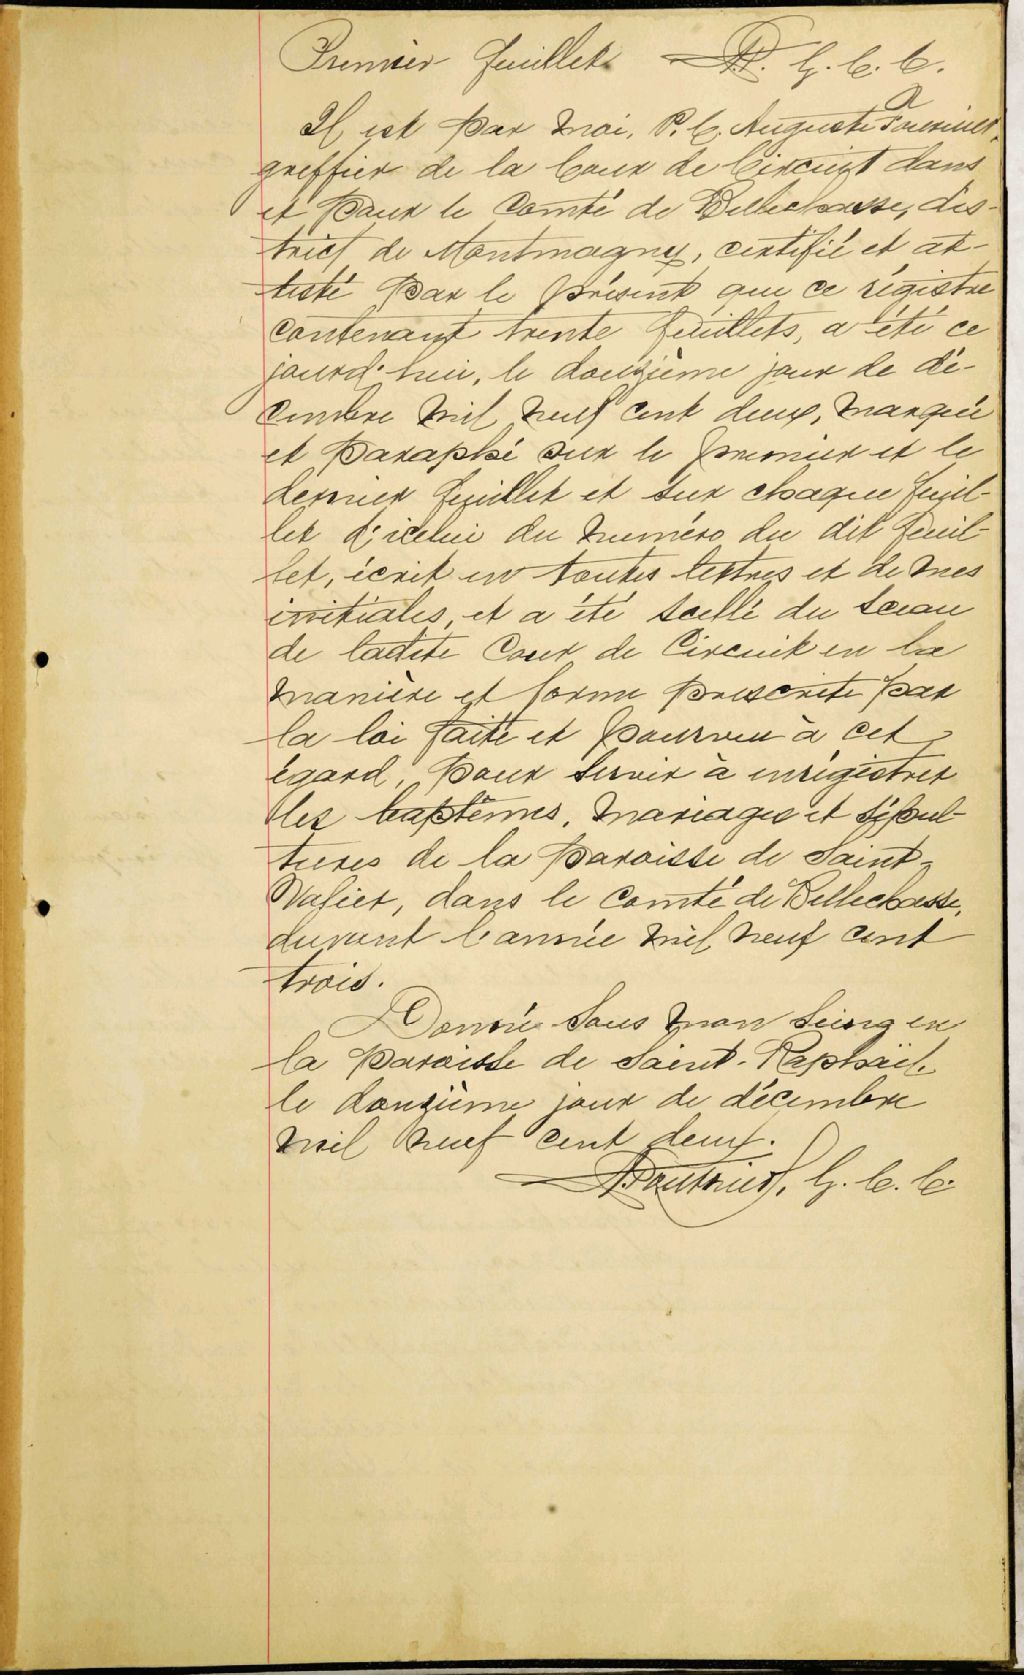 Premier feuillet AP. G. C. C.
Il est par moi, P. C. Auguste
greffier de la Cour de Circuit dans
et pour le Comté de Bellechasse, dis-
trict de Montmagny, certifié et at-
testé par le présent que ce régistre
contenant trente feuillets, a été ce
jourd'hui, le douzième jour de dé-
cembre mil neuf cent deux, marqué
et paraphé sur le premier et le
dernier feuillet et sur chaque feuil-
let d'icelui du numéro du dit feuil-
let, écrit en toutes lettres et de mes
initiales, et a été scellé du sceau
de ladite Cour de Circuit en la
manière et forme prescrite par
la loi faite et pourvu à cet
égard, pour servir à enrégistrer
les baptêmes, mariages et sépul-
tures de la paroisse de Saint-
Valier, dans le comté de Bellechasse,
durant l'année mil neuf cent
trois.
Donné sous mon seing en
la paroisse de Saint-Raphaël,
le douzième jour de décembre
mil neuf cent deux.
G. C. C.